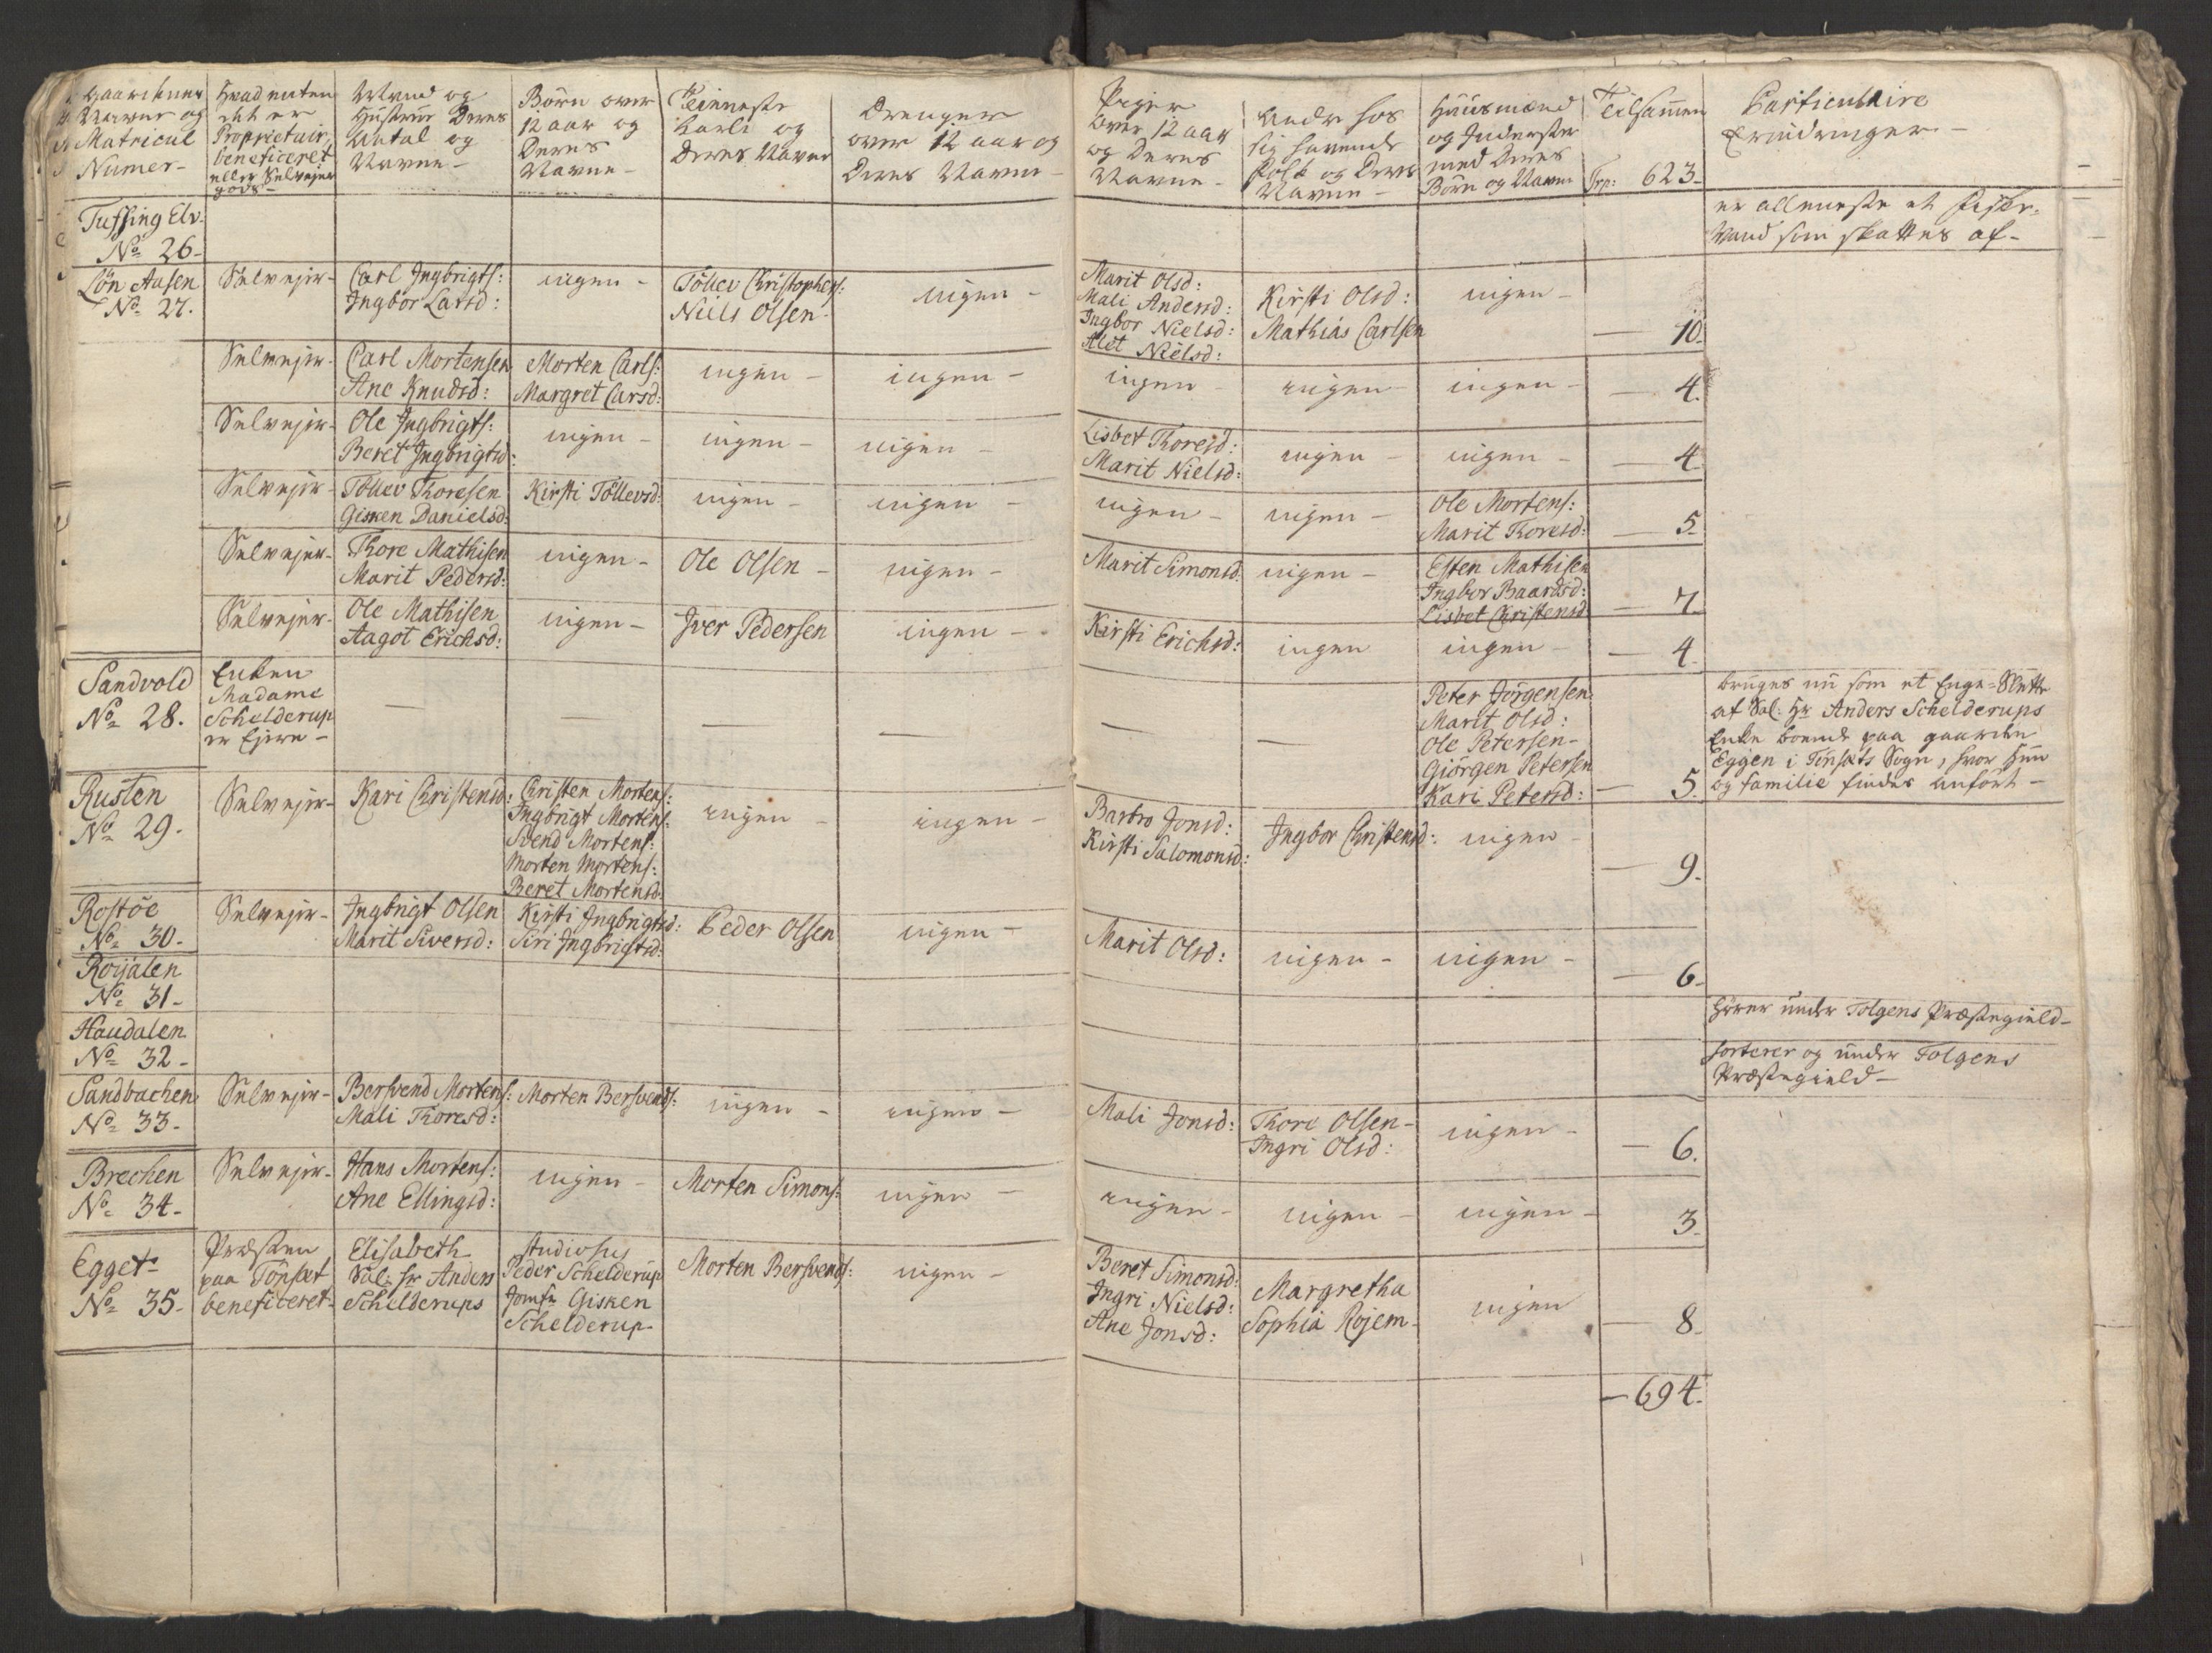 Gaardenes
Navne og
Matricul
Numer-
Hvad enten
det er
Proprietair,
beneficeret
eller Selvejer
gods-
Mand og
Hustrue Deres
Antal og
Navne-
Børn over
12 aar og
Deres
Navne-
Tienneste
Karle og
Deres Navne
Drenger
over 12 aar og
Deres Navne-
Piger
over 12 aar
og Deres
Navne-
Andre hos
sig havende
Folk og Deres
Navne-
Huusmænd
og Inderster
med Deres
Børn og Navne
Tilsammen
Trp: 623-
Particulaire
Erindringer-
Tufsing Elv-
No 26-
er alleneste et Fisker-
Vand som skattes af-
Lön Aasen
No 27.
Selvejer-
Carl Ingbrigts:
Ingbor Larsd:
ingen-
Töllev Christophers:
Niels Olsen-
ingen-
Marit Olsd:
Mali Andersd:
Ingbor Nielsd:
Alet Nielsd:
Kirsti Olsd:
Mathias Carlsen
ingen-
— 10-
Selvejer-
Carl Mortensen
Ane Knudsd:
Morten Carls:
Margret Carsd:
ingen-
ingen-
ingen-
ingen-
ingen-
— 4.
Selvejer-
Ole Ingbrigts:
Beret Ingbrigtsd:
ingen-
ingen-
ingen-
Lisbet Thoresd:
Marit Nielsd:
ingen-
ingen-
— 4-
Selvejer-
Töllev Thoresen
Gisken Danielsd:
Kirsti Töllevsd:
ingen-
ingen-
ingen-
ingen-
Ole Mortens:
Marit Thoresd:
— 5-
Selvejer-
Thore Mathisen
Marit Pedersd:
ingen-
Ole Olsen-
ingen-
Marit Simonsd:
ingen-
Esten Mathisen
Ingbor Baardsd:
Lisbet Christensd:
— 7-
Selvejer-
Ole Mathisen
Aagot Erichsd:
ingen-
Iver Pedersen
ingen-
Kirsti Erichsd:
ingen
ingen-
— 4.
Sandvold
No 28.
Enken
Madame
Schelderup
er Ejere-
—
—
—
—
—
—
Peter Jörgensen
Marit Olsd:
Ole Petersen-
Giörgen Petersen
Kari Petersd:
— 5.
bruges nu som et Enge-Slette
af Sal: Hr Anders Schelderups
Enke boende paa gaarden
Eggen i Tönsæts Sogn, hvor Hun
og familie findes anfört-
Rusten
No 29-
Selvejer-
Kari Christensd:
Christen Mortens:
Ingbrigt Mortens:
Svend Mortens:
Morten Mortens:
Beret Mortensd:
ingen-
ingen-
Barbro Jonsd:
Kirsti Salomonsd:
Ingbor Christensd:
ingen-
— 9.
Rostöe
No 30-
Selvejer-
Ingbrigt Olsen
Marit Siversd:
Kirsti Ingbrigtsd:
Siri Ingbrigtsd:
Peder Olsen
ingen-
Marit Olsd:
ingen-
ingen-
— 6-
Roijalen
No 31-
hörer under Tolgens Præstegield-
Haudalen
No 32-
sorterer og under Tolgens
Præstegield-
Sandbachen
No 33-
Selvejer-
Bersvend Mortens:
Mali Thoresd:
Morten Bersvends:
ingen-
ingen-
Mali Jonsd:
Thore Olsen-
Ingri Olsd:
ingen-
— 6.
Brechen
No 34-
Selvejer-
Hans Mortens:
Ane Ellingsd:
ingen-
Morten Simons:
ingen-
ingen-
ingen-
ingen-
3-
Egget-
No 35-
Præsten
paa Tönset
beneficeret-
Elisabeth
Sal: hr Anders
Schelderups
studiosus
Peder Schelderup
Jomfr Gisken
Schelderup-
Morten Bersvends:
ingen-
Beret Simonsd:
Ingri Nielsd:
Ane Jonsd:
Margretha
Sophia Rojem-
ingen
— 8-
— 694-